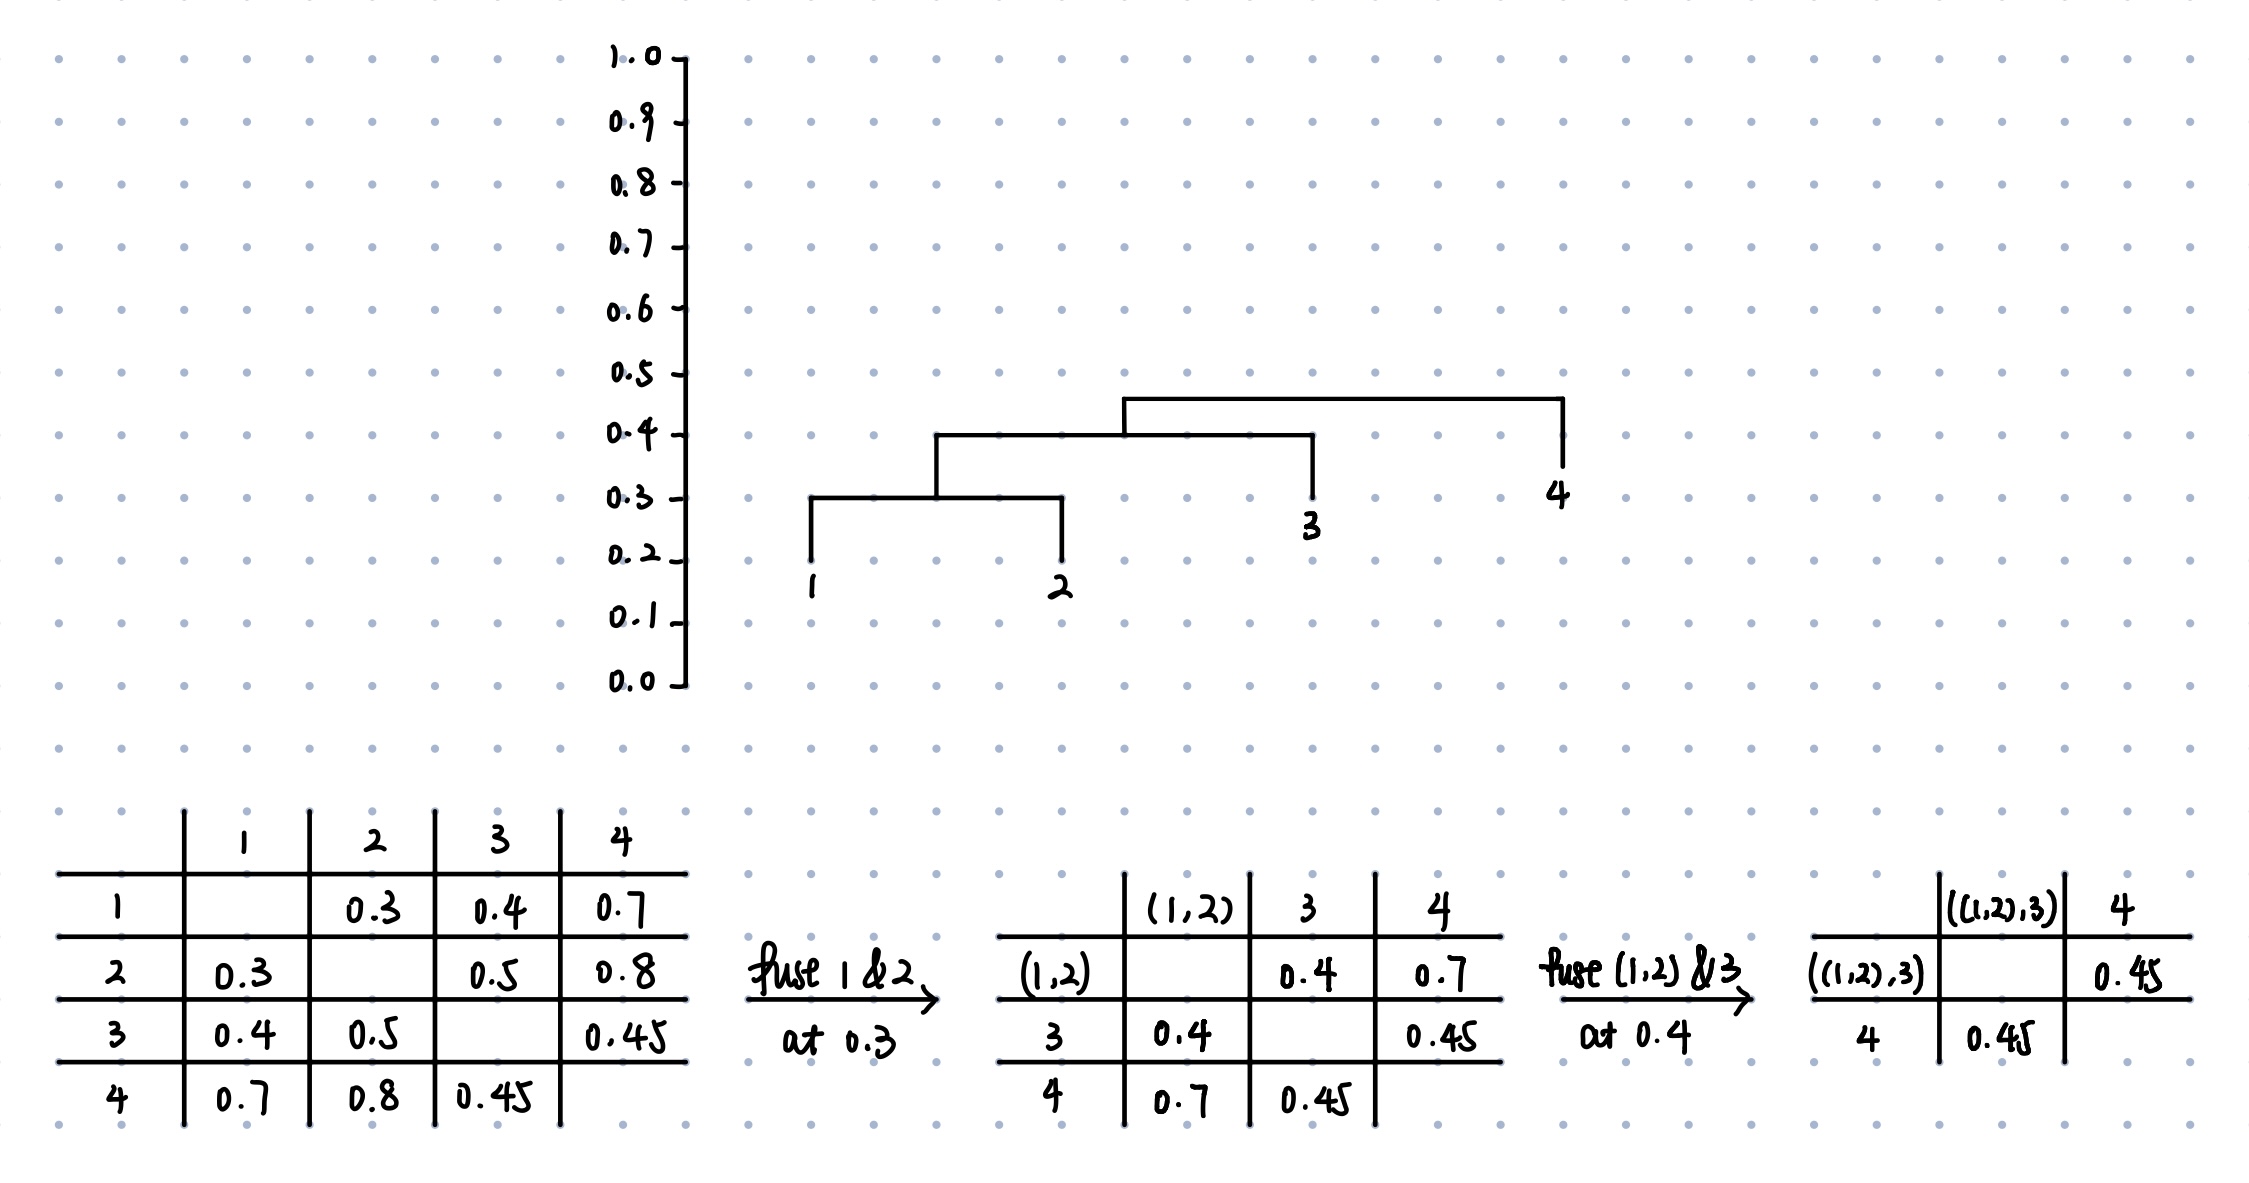 1.0
0.9
0.8
0.7
0.6
0.5
0.4
0.3
0.2
0.1
0.0
4
3
1 2
1 2 3 4
1 0.3 0.4 0.7
2 0.3 0.5 0.8
3 0.4 0.5 0.45
4 0.7 0.8 0.45
fuse 1 & 2
at 0.3
(1,2) 3 4
(1,2) 0.4 0.7
3 0.4 0.45
4 0.7 0.45
fuse (1,2) & 3
at 0.4
((1,2),3) 4
((1,2),3) 0.45
4 0.45